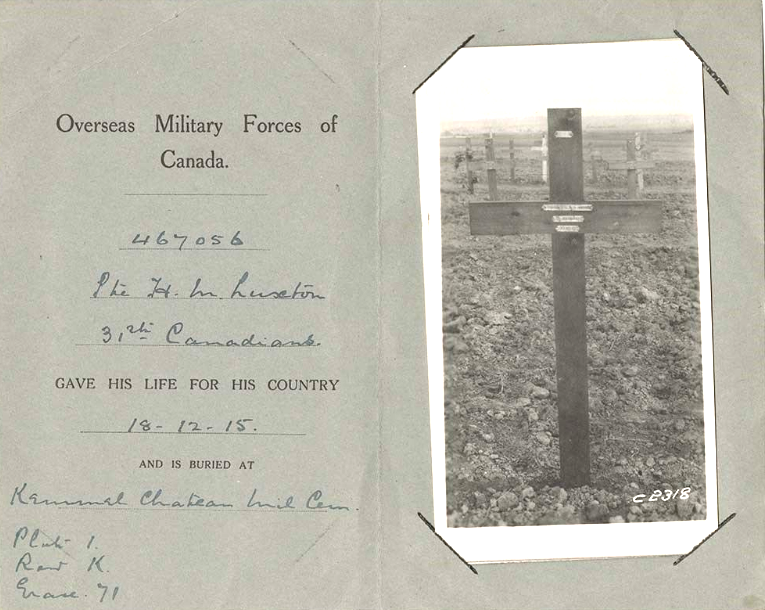 Overseas Military Forces of
Canada.
467056
Pte H. M. Luxton
31st Canadians.
GAVE HIS LIFE FOR HIS COUNTRY
18-12-15.
AND IS BURIED AT
Kemmel Chateau Mil Cem.
Plot 1.
Row K.
Grave. 71
C2318